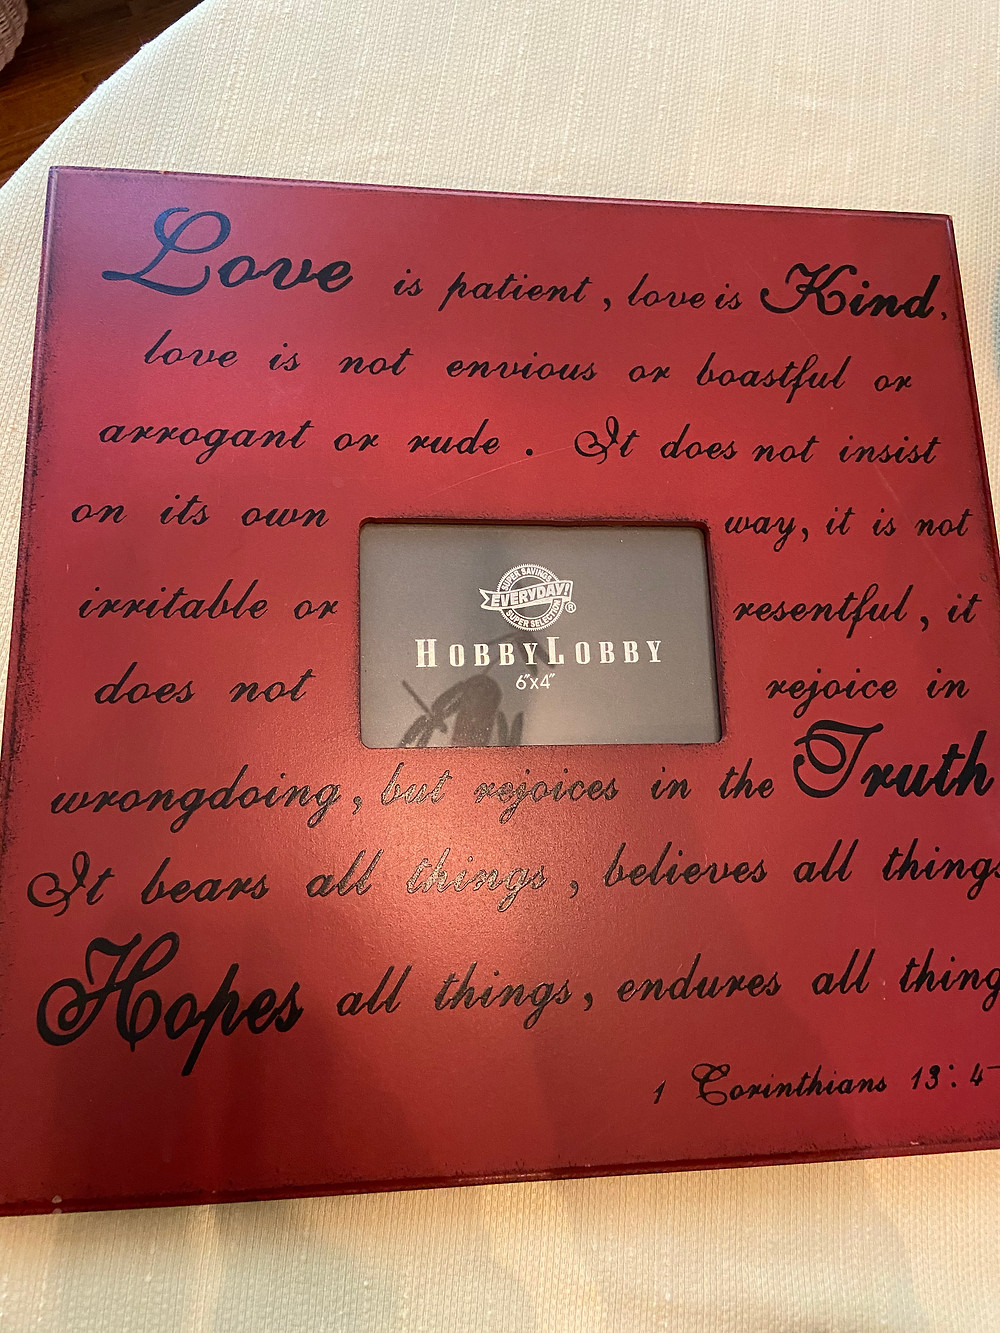 Love is patient, love is Kind,
love is not envious or boastful or
arrogant or rude. It does not insist
on its own way, it is not
irritable or resentful, it
does not rejoice in
wrongdoing, but rejoices in the Truth
It bears all things, believes all things
Hopes all things, endures all thing
1 Corinthians 13:4-
SUPER SAVINGS
EVERYDAY!®
SUPER SELECTION
HOBBY LOBBY
6"x4"